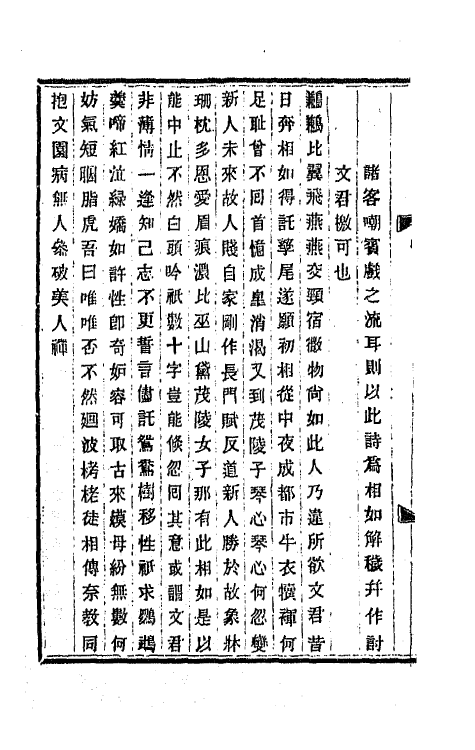 諸客嘲賓戲之流耳則以此詩爲相如解穢幷作討
文君檄可也
鶼鶼比翼飛燕燕交頸宿微物尙如此人乃違所欲文君昔
日奔相如得託孳尾遂願初相從中夜成都市牛衣犢褌何
足耻曾不回首憶成皇消渴又到茂陵子琴心琴心何忽變
新人未來故人賤自家剛作長門賦反道新人勝於故象牀
珊枕多恩愛眉痕濃比巫山黛茂陵女子那有此相如是以
能中止不然白頭吟祇數十字豈能倏忽囘其意或謂文君
非薄情一逢知己志不更誓言儘託鴛鴦樹移性祇求鸚鵡
羹啼紅泣綠嬌如許性卽奇妬容可取古來嫫母紛無數何
妨氣短胭脂虎吾曰唯唯否不然廻波栲栳徒相傳奈敎同
抱文園病無人參破美人禪